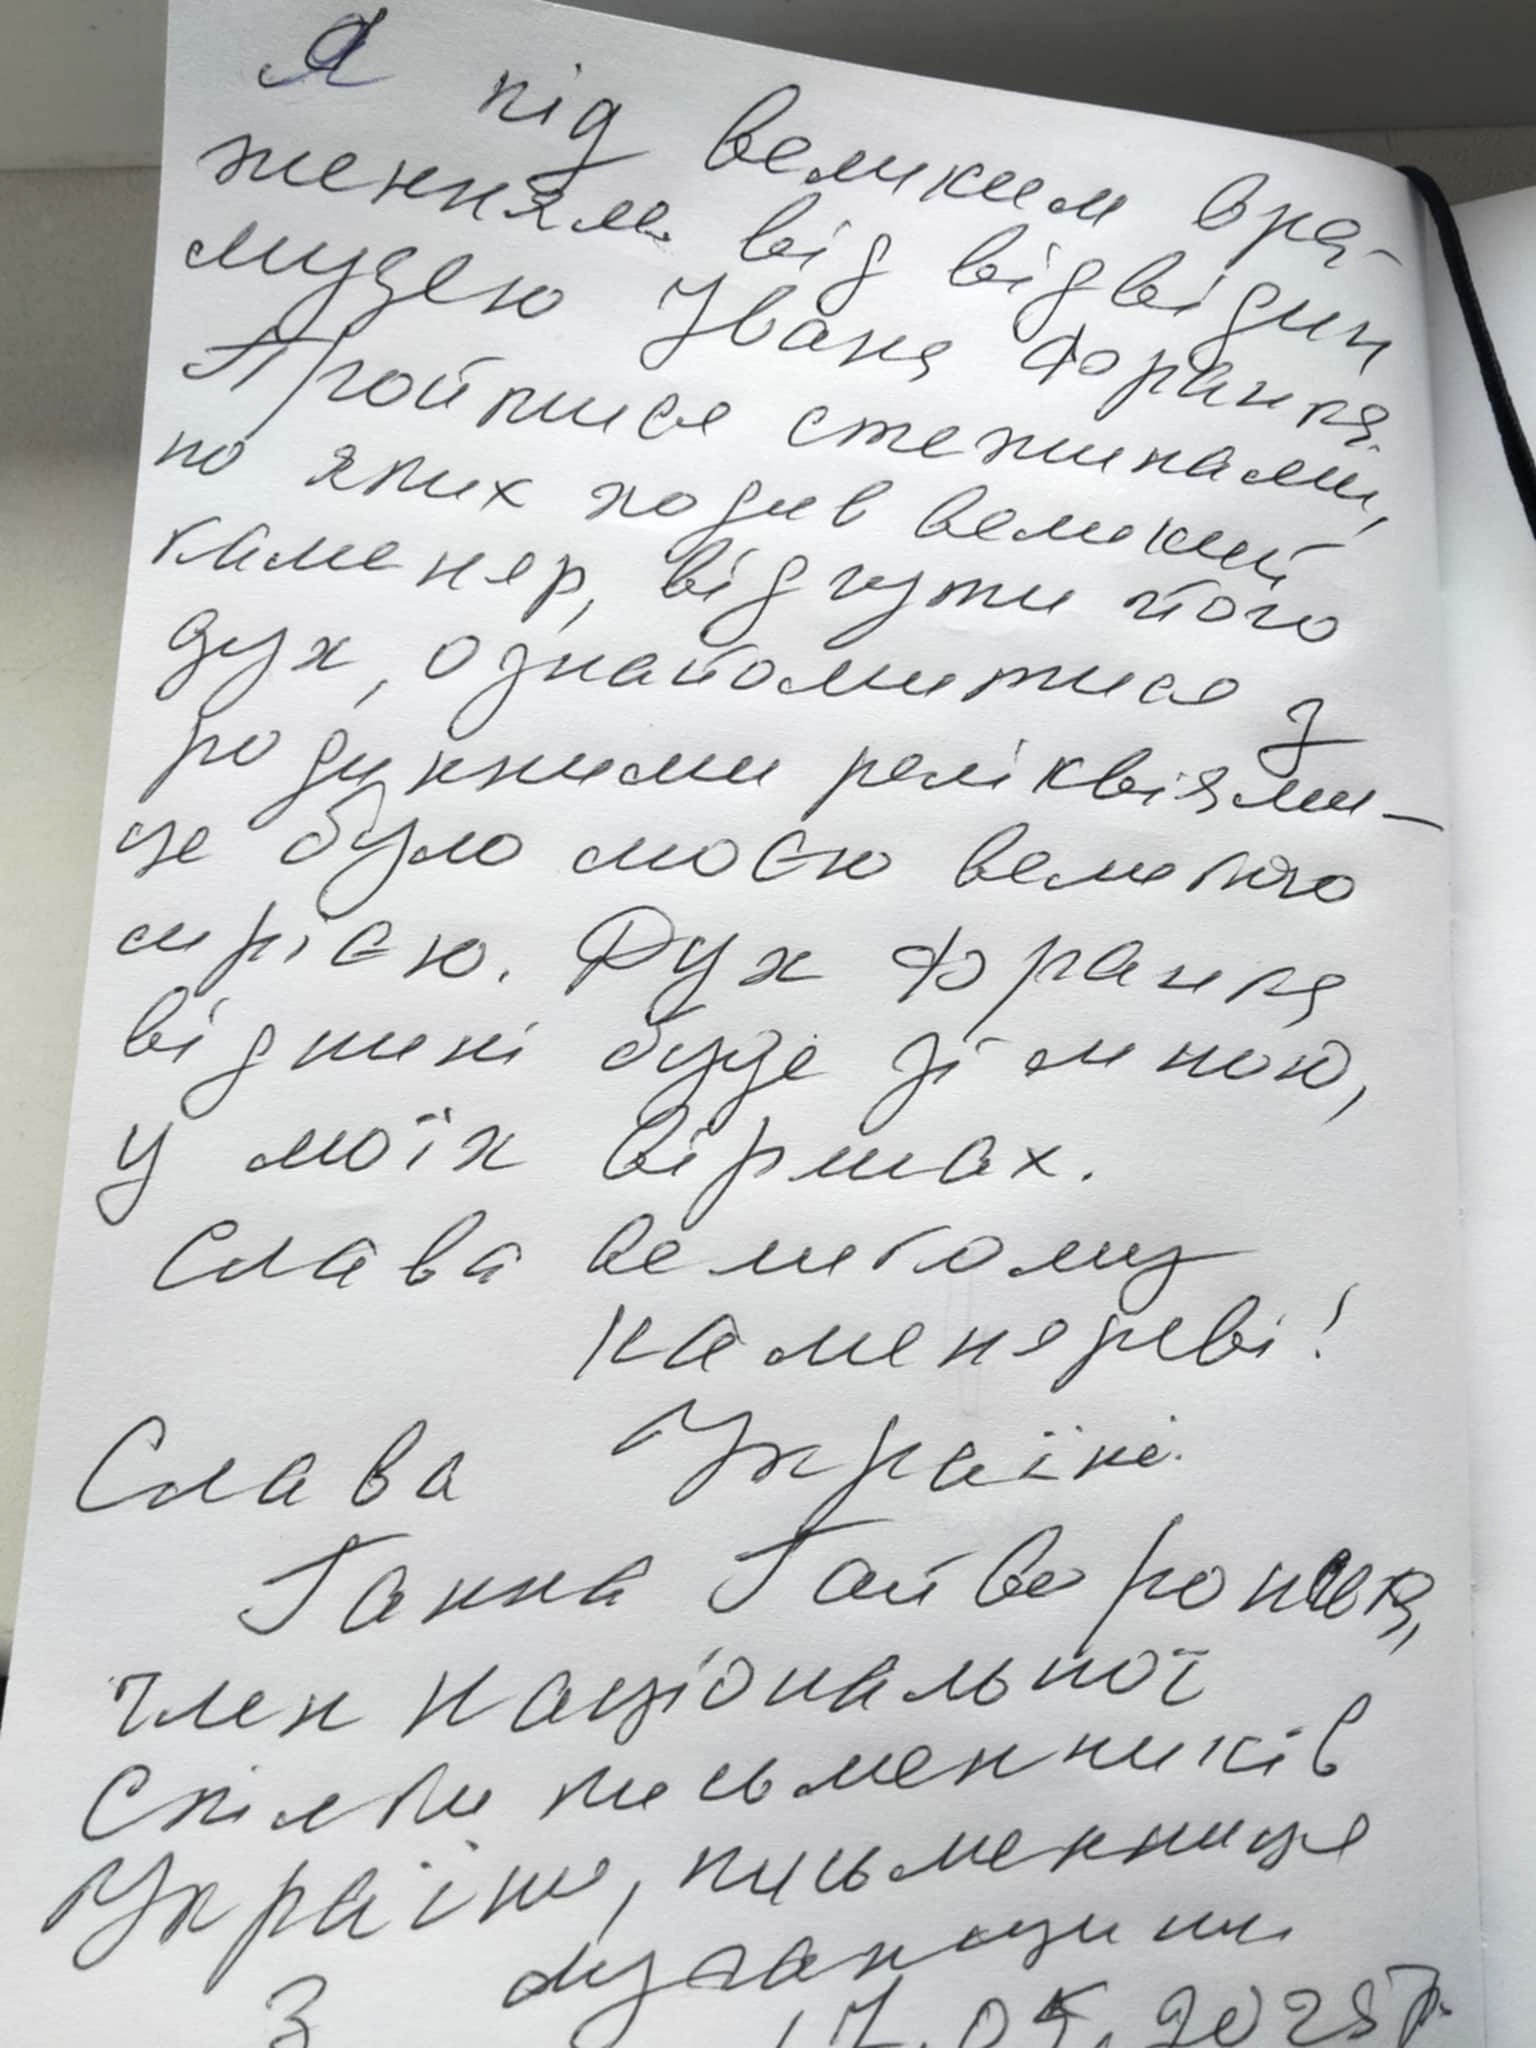 Я під великим вра-
женням від відвідин
музею Івана Франка.
Пройтися стежинами,
по яких ходив великий
каменяр, відчути його
дух, ознайомитися з
родинними реліквіями –
це було моєю великою
мрією. Дух Франка
віднині буде зі мною,
у моїх віршах.
Слава великому
каменяреві!
Слава Україні.
Ганна Гайворонська,
член Національної
Спілки письменників
України, письменниця
з Луганщини
17.05.2025р.